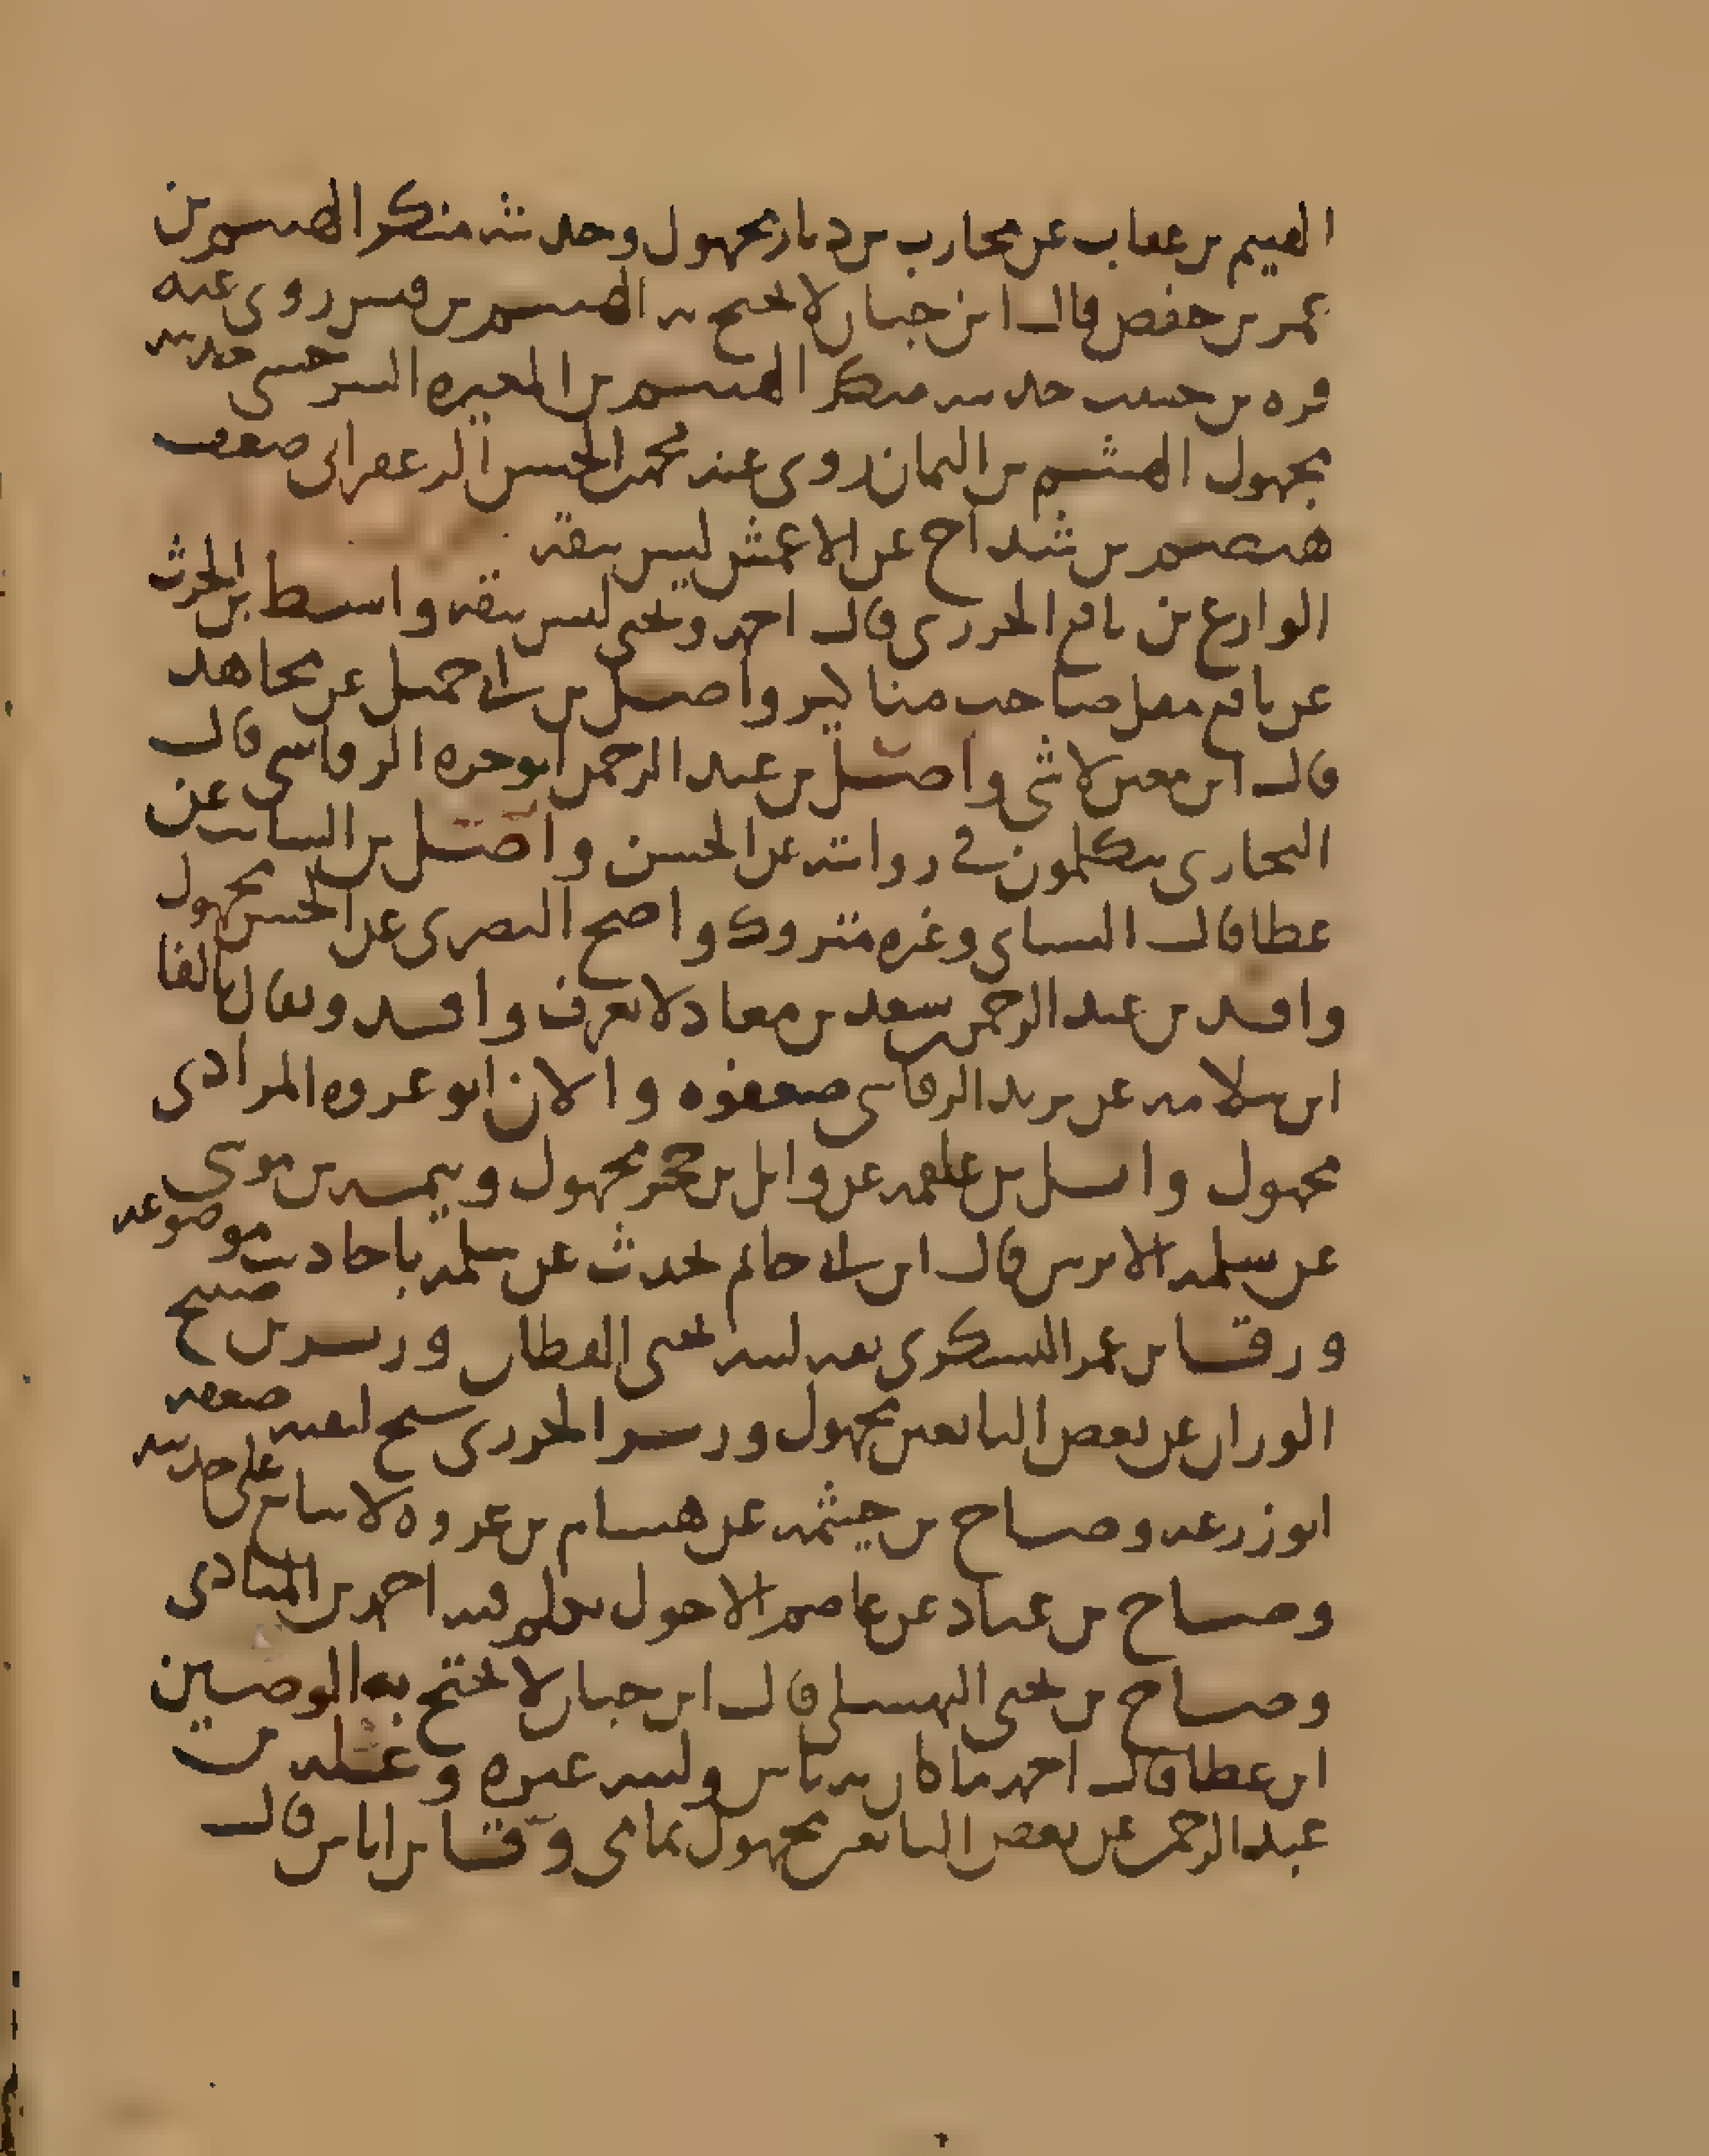 الهيثم بن عقاب عن محارب بن دثار مجهول وحديثه منكر الهيثم بن
عمر بن حفص قال ابن حبان لا يحتج به الهيثم بن قيس روى عنه
قره بن حبيب حديثه منكر الهيثم بن المغيره السرخسي حديثه
مجهول الهيثم بن اليمان روى عنه محمد الحسن الزعفراني ضعف
هيصم بن شداخ عن الاعمش ليس بثقه
الوازع بن نافع الجزري قال احمد ويحيى ليس بثقه واسط بن الحرث
عن نافع مقل صاحب مناكير واصل بن ابي جميل عن مجاهد
قال ابن معين لا شي واصل بن عبد الرحمن ابو حره الرقاشي قال
البخاري يتكلمون في روايته عن الحسن واصل بن السايب عن
عطا قال النساي وغيره متروك واضح البصري عن الحسن مجهول
واقد بن عبد الرحمن بن سعد بن معاذ لا يعرف وافد ويقال بالفا
ابن سلامه عن يزيد الرقاشي ضعفوه والان ابو عروه المرادي
مجهول وايل بن علقمه عن وايل بن حجر مجهول وثيمه بن موسى
عن سلمه الابرش قال ابن ابي حاتم يحدث عن سلمه باحاديث موضوعه
ورقا بن عمر اليشكري ثقه لينه يحيى القطان وزير بن صبيح
الوزان عن بعض التابعين مجهول وزير الجزري شيخ لبقيه ضعفه
ابو زرعه وضاح بن خيثمه عن هشام بن عروه لا يتابع على حديثه
وضاح بن عباد عن عاصم الاحول تكلم فيه احمد بن المنادي
وضاح بن يحيى النهشلي قال ابن حبان لا يحتج به الوضين
ابن عطا قال احمد ما كان به باس ولينه غيره وعله بن
عبد الرحمن عن بعض التابعين مجهول يمامي وقا بن اياس قال